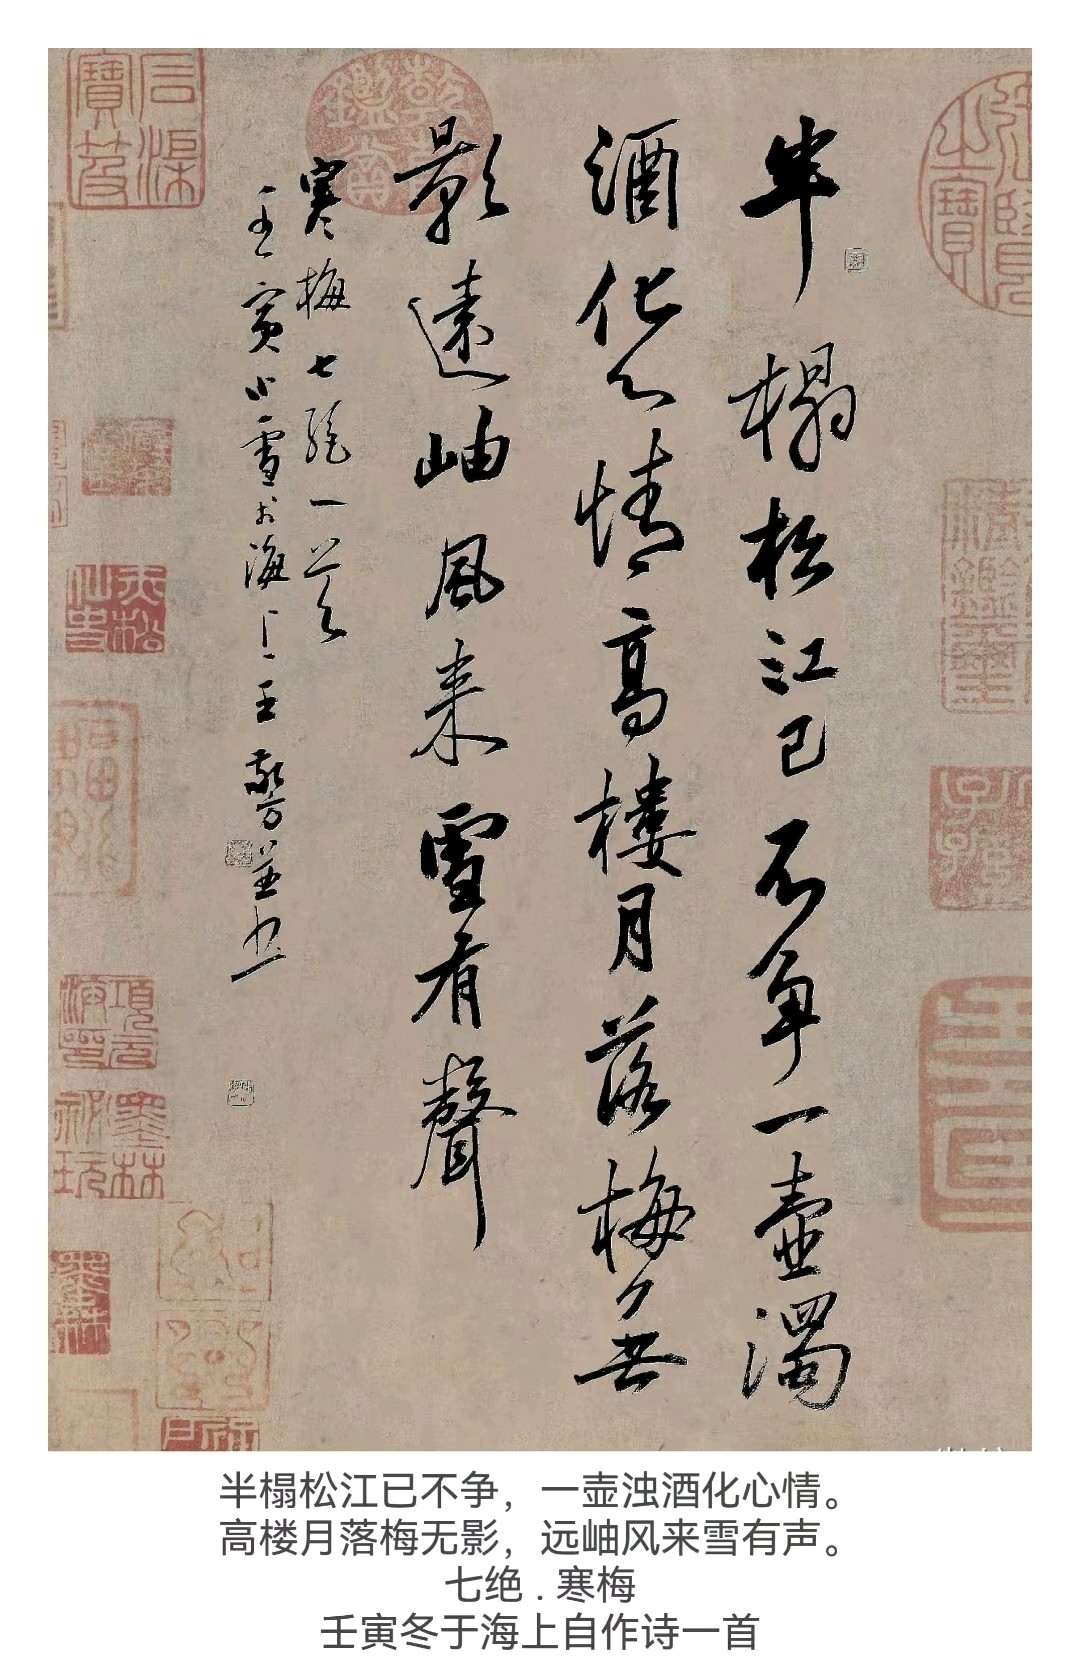 半榻松江已不争一壶濁
酒化心情高楼月落梅無
影遠岫風来雪有聲
寒梅七绝一首
壬寅小雪於海上王敬芳并书
半榻松江已不争，一壶浊酒化心情。
高楼月落梅无影，远岫风来雪有声。
七绝 . 寒梅
壬寅冬于海上自作诗一首